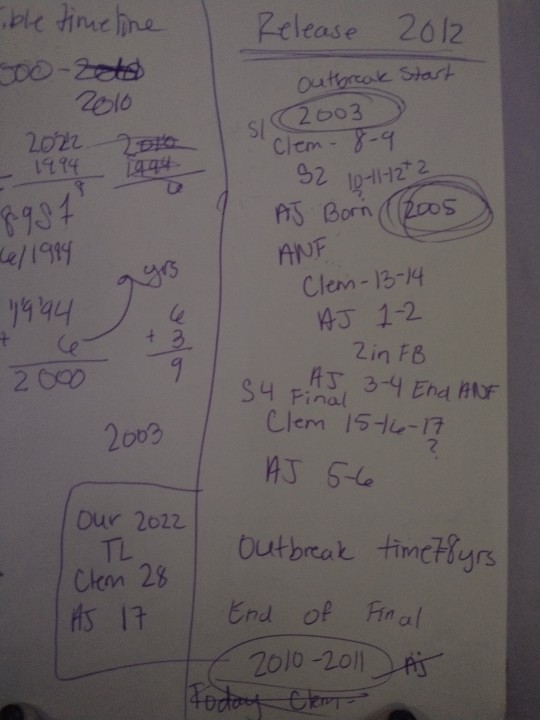 ible timeline
500 - 2010
2010
2022
1994
8
2010
1994
6
8987
6/1994
yrs
1994
+ 6
2000
6
+ 3
9
2003
Our 2022
TL
Clem 28
AJ 17
Release 2012
Outbreak Start
2003
S1 Clem - 8-9
S2 10-11-12+2
?
AJ Born 2005
ANF
Clem-13-14
AJ 1-2
2 in FB
S4 Final AJ 3-4 End ANF
Clem 15-16-17
?
AJ 5-6
Outbreak time 78yrs
End of Final
2010-2011 AJ
Today Clem-